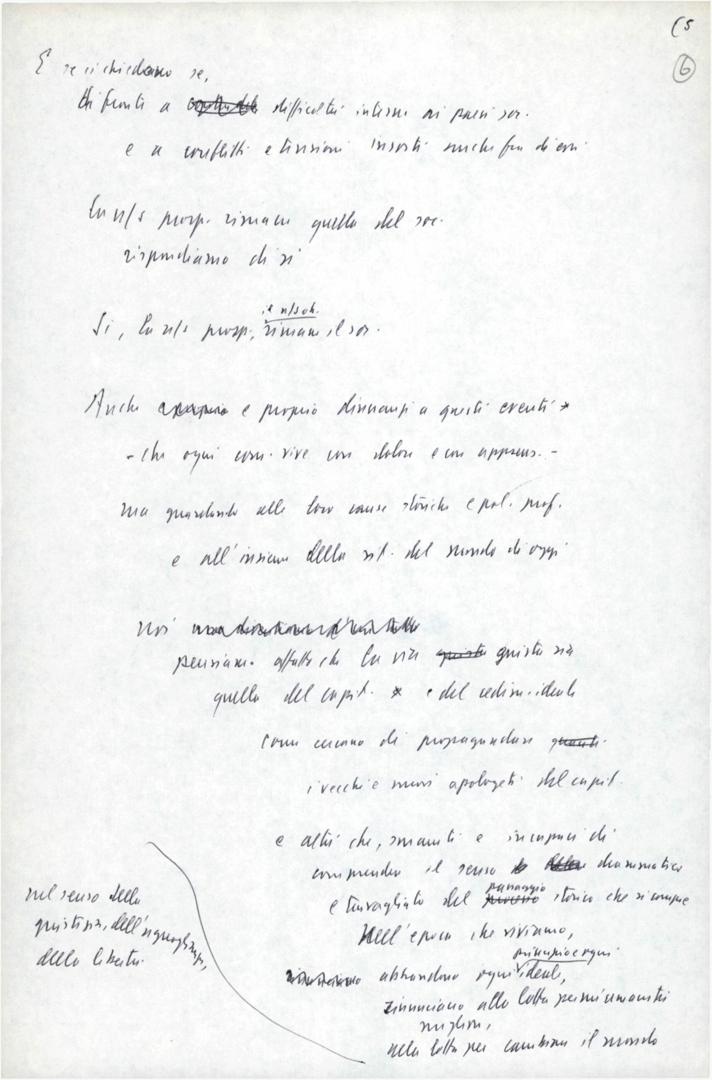 (5
6
E se ci chiedono se,
di fronte a difficoltà interne ai paesi soc.
e a conflitti e tensioni insorti anche fra di essi
la n/s prosp. rimane quella del soc.
rispondiamo di sì
il n/s ob.
Sì, la n/s prosp., rimane il soc.
Anche e proprio dinnanzi a questi eventi *
- che ogni com. vive con dolore e con apprens. -
ma guardando alle loro cause storiche e pol. prof.
e all'insieme della sit. del mondo di oggi
noi
pensiamo affatto che la via questa giusta sia
quella del capit. * e del cedim. ideale
come cercano di propagandare quanti
i vecchi e nuovi apologeti del capit.
e altri che, smarriti e incapaci di
comprendere il senso drammatico
passaggio
e travagliato del processo storico che si compie
nell'epoca che viviamo,
principio e ogni
rinunciano abbandona ogni ideale,
rinunciano alla lotta per
migliori,
alla lotta per cambiare il mondo
nel senso della
giustizia, dell'eguaglianza,
della libertà.